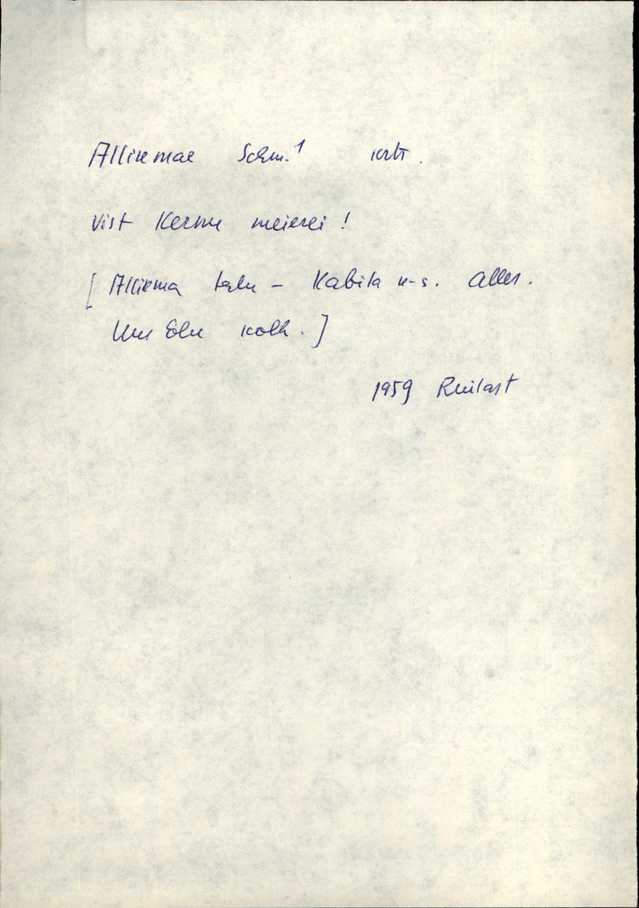 Allikmae Schm.¹ krt.
Vist Kernu meierei!
[Allikma talu - Kabila k-s. Aller.
Uus Elu kolh.]
1959 Ruilast